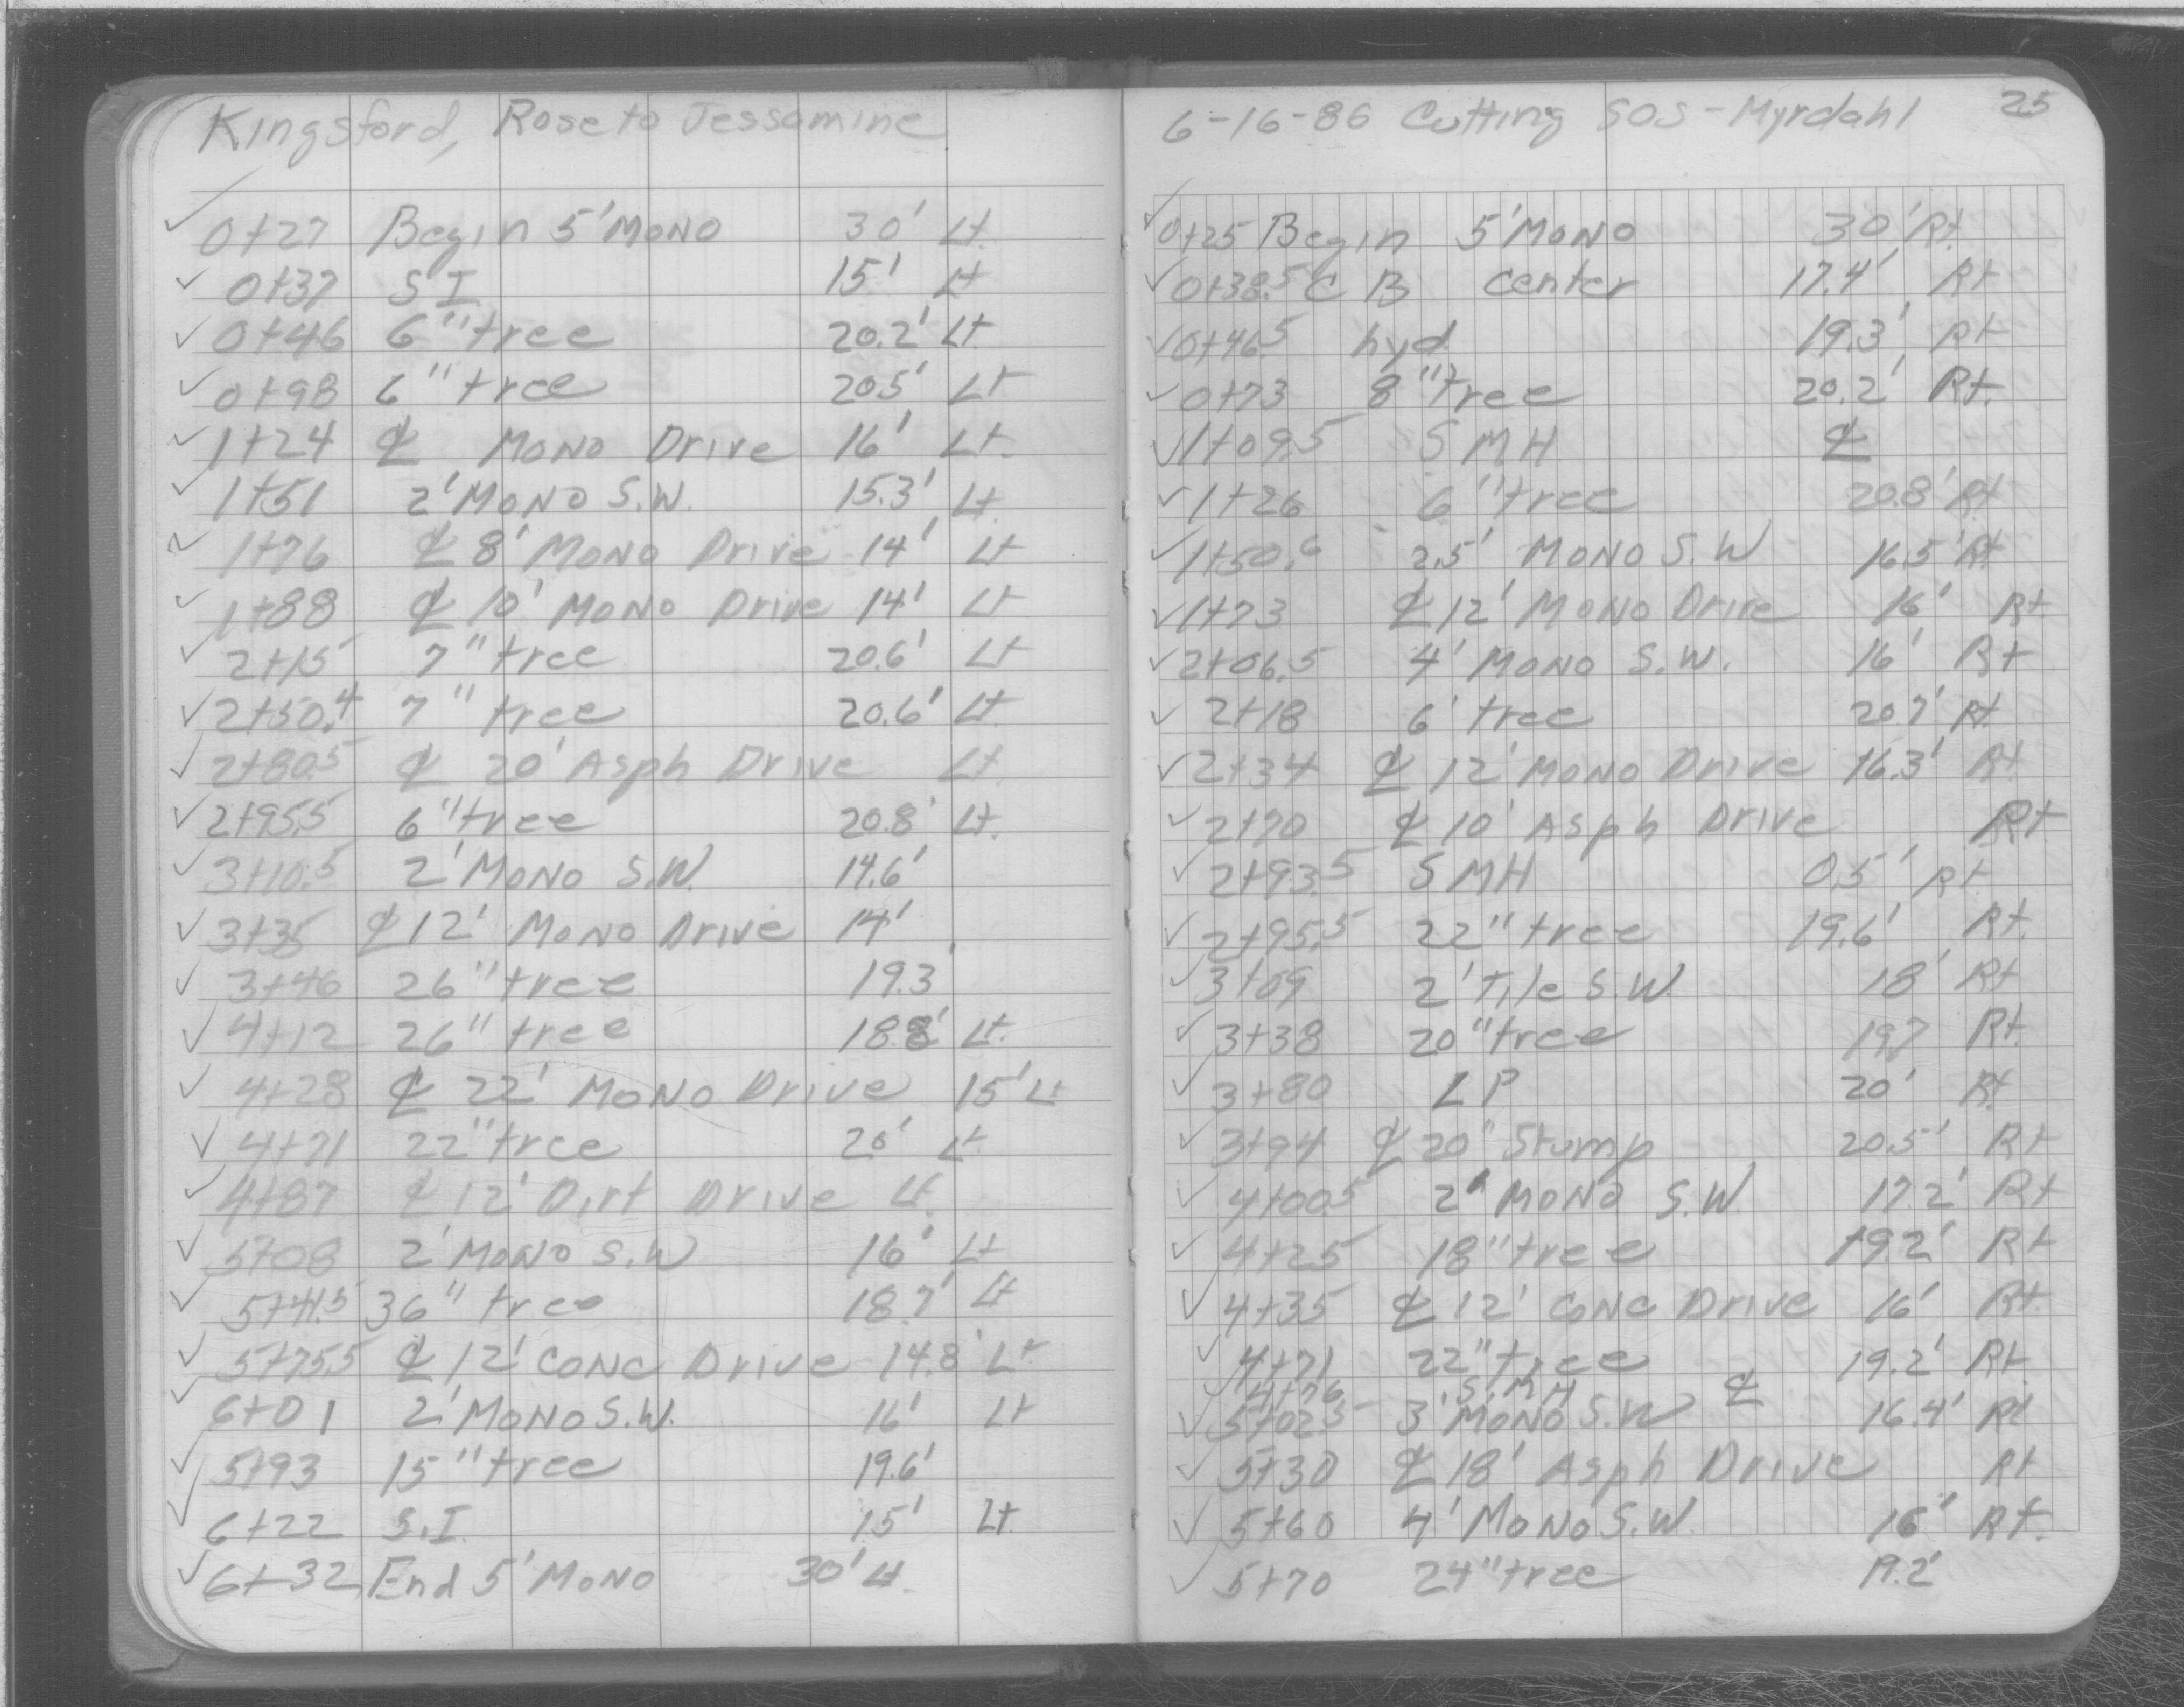 Kingsford, Rose to Jessamine
✓ 0+27 Begin 5' Mono 30' Lt.
✓ 0+37 S I 15' Lt
✓ 0+46 6" tree 20.2' Lt.
✓ 0+98 6" tree 20.5' Lt
✓ 1+24 ℄ Mono Drive 16' Lt.
✓ 1+51 2' Mono S.W. 15.3' Lt.
✓ 1+76 ℄ 8' Mono Drive 14' Lt
✓ 1+88 ℄ 10' Mono Drive 14' Lt
✓ 2+15 7" tree 20.6' Lt
✓ 2+50.4 7" tree 20.6' Lt.
✓ 2+80.5 ℄ 20' Asph Drive Lt.
✓ 2+95.5 6" tree 20.8' Lt.
✓ 3+10.5 2' Mono S.W. 14.6'
✓ 3+35 ℄ 12' Mono Drive 14'
✓ 3+46 26" tree 19.3'
✓ 4+12 26" tree 18.8' Lt.
✓ 4+28 ℄ 22' Mono Drive 15' Lt
✓ 4+71 22" tree 20' Lt.
✓ 4+87 ℄ 12' Dirt Drive Lt.
✓ 5+08 2' Mono S.W 16' Lt
✓ 5+41.5 36" tree 18.7' Lt
✓ 5+75.5 ℄ 12' Conc Drive 14.8' Lt
✓ 6+01 2' Mono S.W. 16' Lt
✓ 5+93 15" tree 19.6'
✓ 6+22 S.I. 15' Lt.
✓ 6+32 End 5' Mono 30' Lt.
6-16-86 Cutting SOS - Myrdahl 25
✓ 0+25 Begin 5' Mono 30' Rt.
✓ 0+38.5 C B Center 17.4' Rt
✓ 0+46.5 hyd. 19.3' Rt
✓ 0+73 8" tree 20.2' Rt.
✓ 1+09.5 S M H ℄
✓ 1+26 6" tree 20.8' Rt
✓ 1+50.6 2.5' Mono S.W 16.5' Rt
✓ 1+73 ℄ 12' Mono Drive 16' Rt
✓ 2+06.5 4' Mono S.W. 16' Rt
✓ 2+18 6' tree 20.7' Rt.
✓ 2+34 ℄ 12' Mono Drive 16.3' Rt
✓ 2+70 ℄ 10' Asph Drive Rt
✓ 2+93.5 S M H 0.5' Rt
✓ 2+95.5 22" tree 19.6' Rt.
✓ 3+09 2' Tile S.W. 18' Rt
✓ 3+38 20" tree 19.7 Rt.
✓ 3+80 L P 20' Rt.
✓ 3+94 ℄ 20" Stump 20.5' Rt
✓ 4+00.5 2' Mono S.W. 17.2' Rt
✓ 4+25 18" tree 19.2' Rt
✓ 4+35 ℄ 12' Conc Drive 16' Rt.
✓ 4+71 22" tree 19.2' Rt.
✓ 4+76 S.M H ℄
✓ 5+02.5 3' Mono S.W 16.4' Rt
✓ 5+30 ℄ 18' Asph Drive Rt
✓ 5+60 4' Mono S.W. 16' Rt.
✓ 5+70 24" tree 19.2'